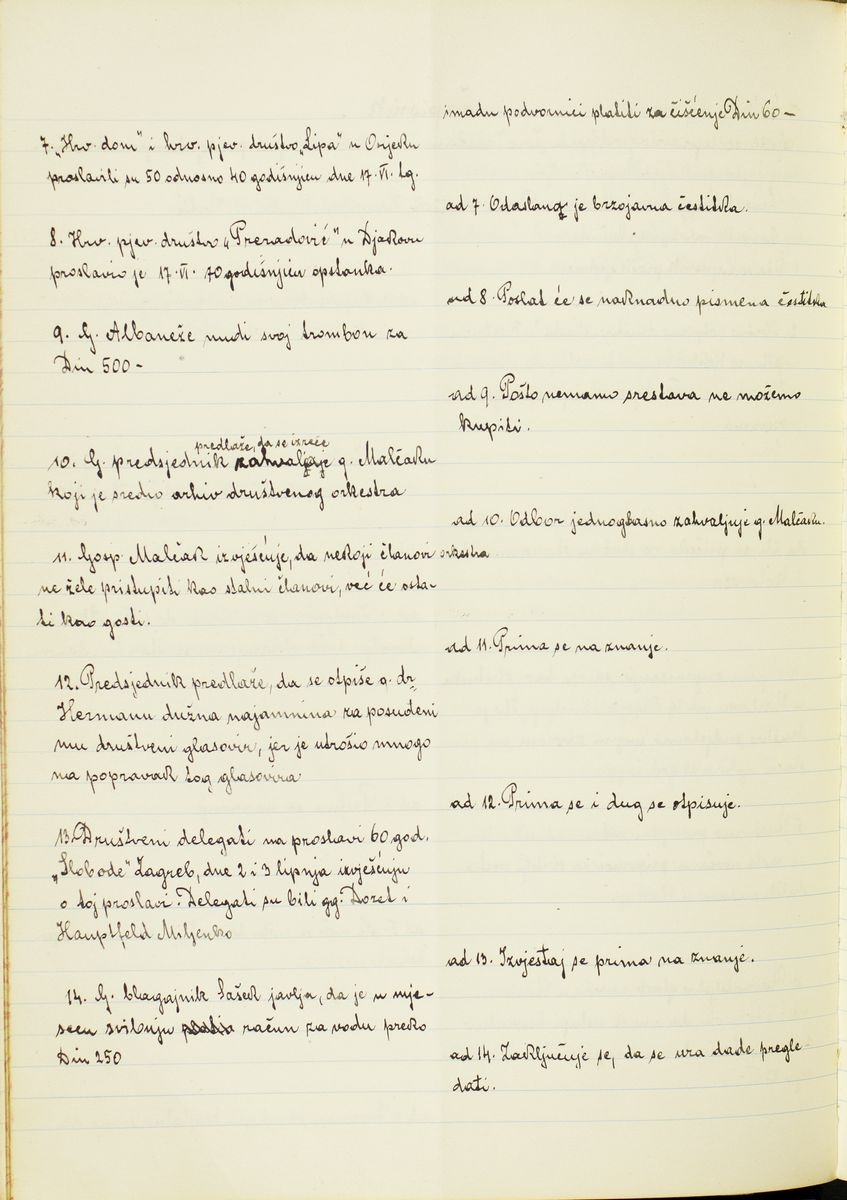 7. „Hrv. dom" i hrv. pjev. društvo „Lipa" u Osijeku
proslavili su 50 odnosno 40 godišnjicu dne 17. VI. tg.
8. Hrv. pjev. društvo „Preradović" u Djakovu
proslavio je 17. VI. 70 godišnjicu opstanka.
9. G. Albaneže nudi svoj trombon za
Din 500 –
predlaže, da se izreče
10. G. predsjednik zahvaljuje g. Malčaku
koji je sredio arhiv društvenog orkestra
11. Gosp. Malčak izvješćuje, da neskoji članovi orkestra
ne žele pristupiti kao stalni članovi, već će osta-
ti kao gosti.
12. Predsjednik predlaže, da se otpiše g. dr
Hermanu dužna najamnina za posuđeni
mu društveni glasovir, jer je utrošio mnogo
na popravak tog glasovira
13. Društveni delegati na proslavi 60 god.
„Slobode" Zagreb, dne 2 i 3 lipnja izvješćuju
o toj proslavi. Delegati su bili gg. Dozet i
Hauptfeld Miljenko
14. G. blagajnik Sašek javlja, da je u mje-
secu svibnju račun za vodu preko
Din 250
imadu podvornici platiti za čišćenje Din 60 –
ad 7. Odaslana je brzojavna čestitka.
ad 8. Poslat će se naknadno pismena čestitka
ad 9. Pošto nemamo srestava ne možemo
kupiti.
ad 10. Odbor jednoglasno zahvaljuje g. Malčaku.
ad 11. Prima se na znanje.
ad 12. Prima se i dug se otpisuje.
ad 13. Izvještaj se prima na znanje.
ad 14. Zaključuje se, da se ura dade pregle-
dati.